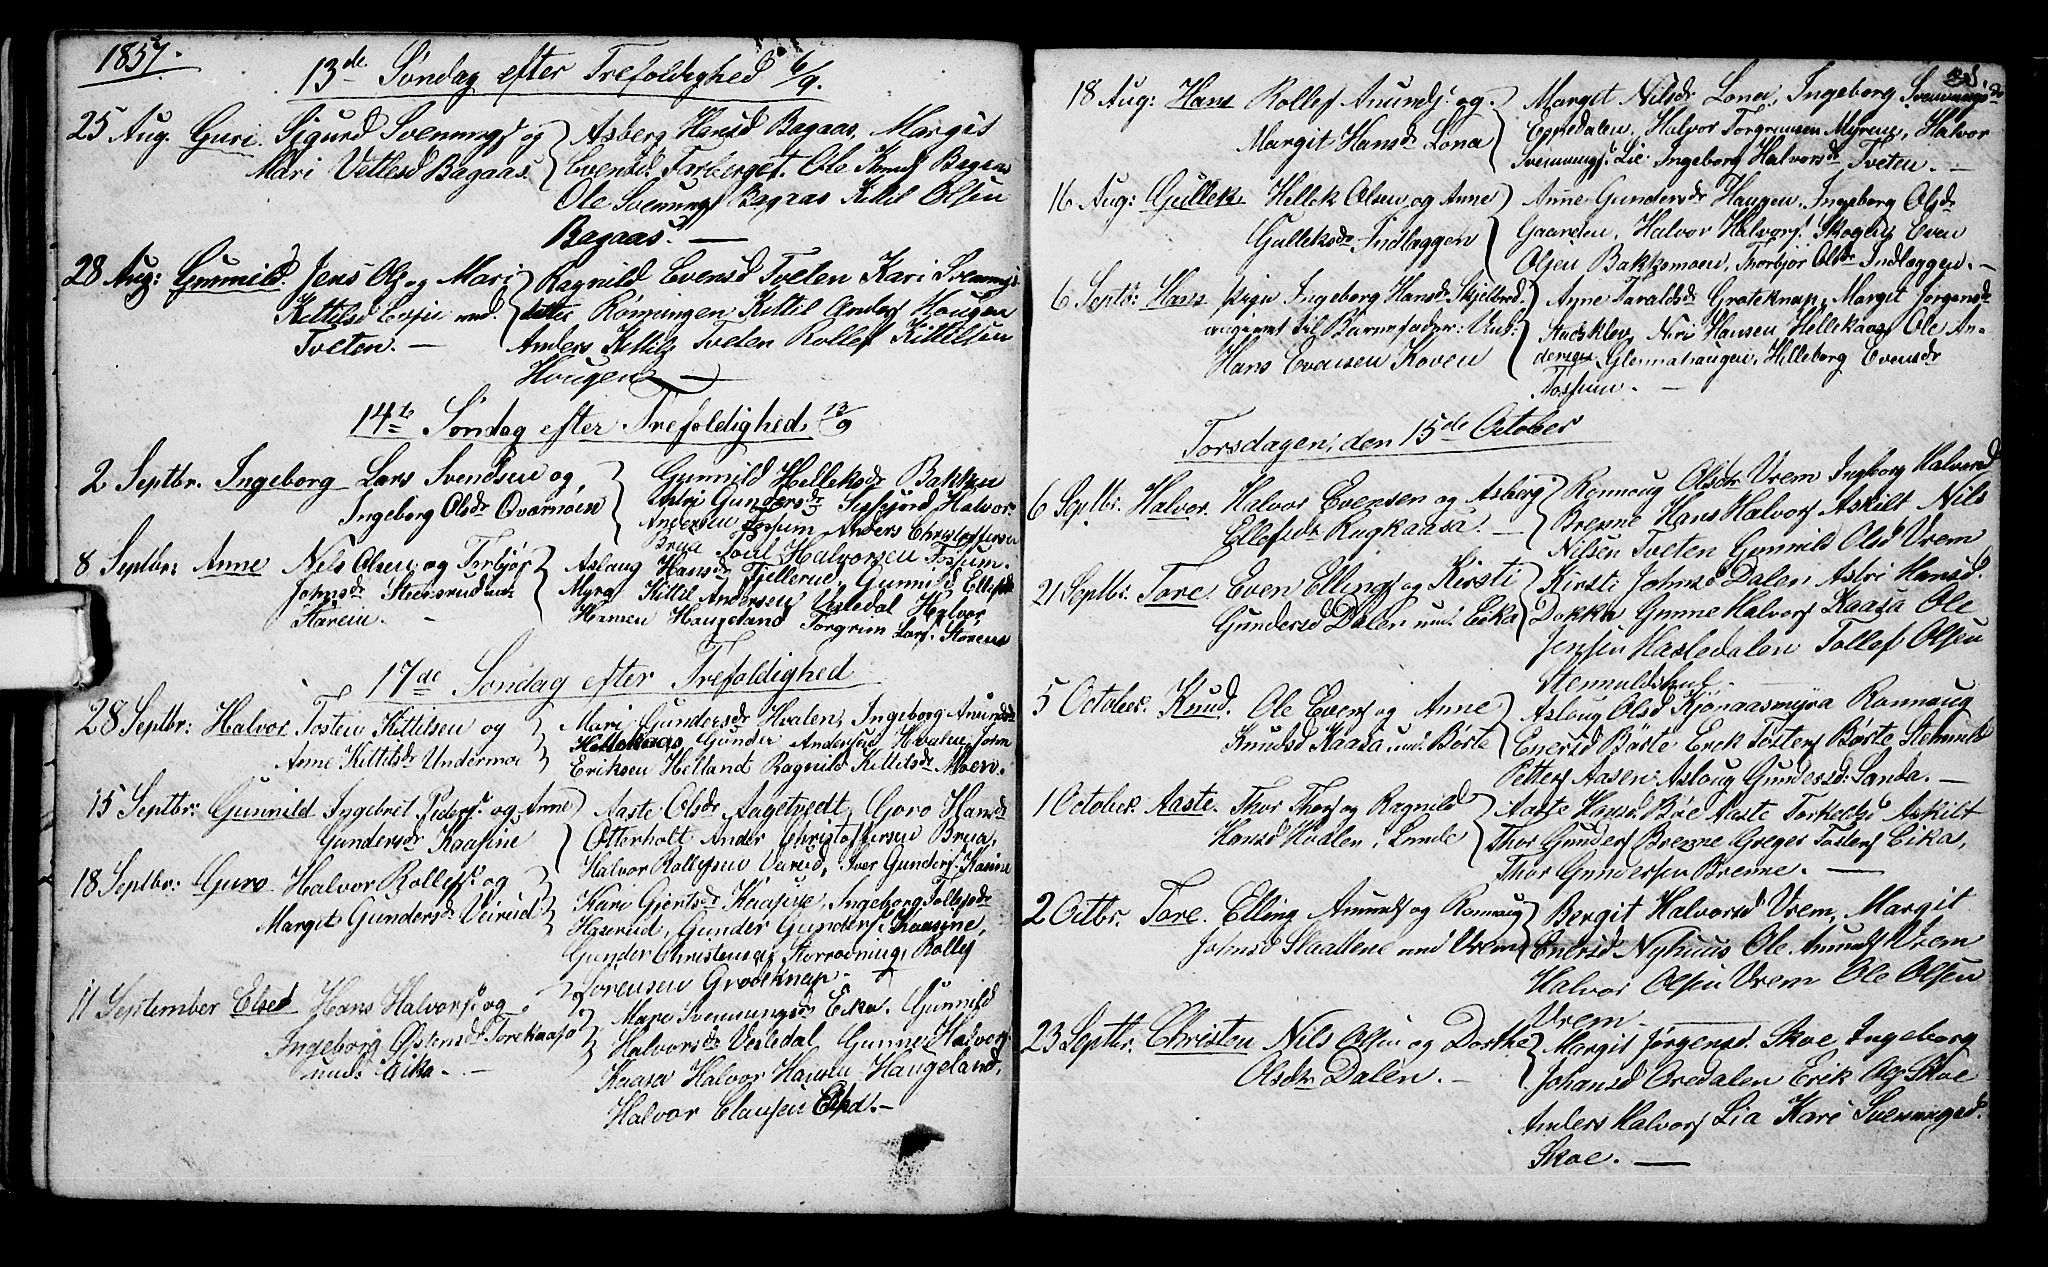 1857.
13de Söndag efter Trefoldighed 6/9.
25 Aug. Guri. Sigurd Svenungs og
Mari Vetlesd Bagaas.
Asberg Hansd Bagaas. Margit
Evensd. Torberget. Ole Knuds Bagaas
Ole Svenungs Bagaas Kittil Olsen
Bagaas. —
28 Aug: Gunnild. Jens Ols og Mari
Kittilsd und.
Tveten. —
Ragnild Evensd Tveten Kari Svenungs
datter Rønningen Kittil Anders Hougen
Anders Kittils Tveten Rollef Kittelsen
Hougen —
14te Søndag efter Trefoldighed. 13/9
2 Septbr. Ingeborg Lars Svendsen og
Ingeborg Olsdr Qværnøien
Gunnild Helleksdr Bakken
Astri Gundersdr Halvor
Andersen Fossum Anders Christophersen
Brua Joel Halvorsen Fossum.
8 Septbr: Anne Nils Olsen og Thorbjør
Johnsdr Steensrud und.
Aslaug Hansdr Fjellerud, Gunnild Ellefsdr
Myra Kittil Andersen Vesledal Halvor
Hansen Haugeland Torgrim Lars.
17de Søndag efter Trefoldighed
28 Septbr: Halvor Tosten Kittilsen og
Anne Kittilsdr Undermoe
Mari Gundersdr Hvalen, Ingeborg Anundsdr
Hellekaas Gunder Andersen Hvalen, John
Eriksen Helland Ragnild Kittilsdr Moen.
15 Septbr: Gunnild Ingebret Peders. og Anne
Gundersdr Kaasine
Aaste Olsdr Aagetvedt, Goro Hansdr
Otterholt Ander Christoffersen Brua,
Halvor Rollefsen Værid, Iver Gunders. Kasine
18 Septbr: Guro Halvor Rollefs. og
Margit Gundersdr Veirud
Kari Gjertsdr Kaasine, Ingeborg Tollefsdr
Haserud, Gunder Gunders. Kaasine,
Gunder Christensen Rollef
Sorensen Grodeknap.
11 September Elsed Hans Halvors. og
Ingeborg Østensdr Torekaasa
und. Eika. —
Mari Svennungsdr Eika. Gunnild
Halvorsdr Vesledal Gunne Halvors.
Kaasa Halvor Hansen Haugeland,
Halvor Clausen —
18 Aug: Hans Rollef Anunds. og
Margit Hansdr Lona
Margit Nilsdr Lona, Ingeborg Svennungsdr
Eppedalen, Halvor Torgrimsen Myrene, Halvor
Svennungs. Lie. Ingeborg Halvorsdr Tveten. —
16 Aug: Gullek Hellek Olsen og Anne
Gulleksdr Indlæggen
Anne Gundersdr Haugen, Ingeborg Olsdr
Gaarden, Halvor Halvors. Skogen Even
Olsen Bakkemoen, Thorbjør Olsdr Indlæggen. —
6 Septb: Hans pige Ingeborg Hansdr Skjelbred.
angivet til Barnefader: Ank:
Hans Evensen Koven
Anne Taraldsdr Groteknap, Margit Jørgensdr
Stadsklev, Niri Hansen Hellekaas Ole An-
dersen Glennahaugen, Helleborg Evensdr
Fossum. —
Torsdagen, den 15de October
6 Septbr. Halvor. Halvor Evensen og Asberg
Ellefsdr Rugkaasa. —
Ronnoug Olsdr Vrem Ingborg Halvorsd
Brenne Hans Halvors Askilt Nils
Nilsen Tveten Gunnild Olsd Vrem
21 Septbr. Tore. Even Ellings og Kirsti
Gundersd Dalen und. Eika
Kirsti Johnsd Dalen, Astri Hansd.
Dokka Gunne Halvors Kaasa Ole
Jensen Hasledalen Tollef Olsen
5 October. Knud. Ole Evens og Anne
Knudsd Kaasa und. Børte
Asloug Olsd Kjønaasmyra Ronnaug
Enersd Børte Erek Tostens Børte Stehnuls
Petters Aasen Asloug Gundersd: Landa. —
1 October. Aaste. Thor Thors og Ragnild
Hansd Hvalen, i Lunde
Aaste Hansd Bøe Aaste Torkelsd Askilt
Thor Gunders Brenne Greger Tostens Eika,
Thor Gundersen Brenne. —
2 Octbr. Tore. Elling Anunds og Ronnaug
Johnsd Slaattene und Vrem
Bergit Halvorsd Vrem, Margit
Enersd Nyhuus Ole Anunds Vrem
Halvor Olsen Vrem Ole Olsen
Vrem
23 Septbr. Christen Nils Olsen og Dorthe
Olsdr Dalen. —
Margit Jørgensd. Skoe Ingeborg
Johansd Oredalen Erik Ols Skoe
Anders Halvors Lia Kari Svenungsd.
Skoe. —